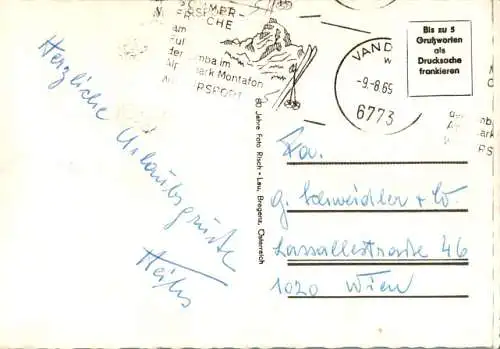 SOMMER-
SKISPORT
am
Fuß
der Zimba im
Alpenpark Montafon
WINTERSPORT
VAND
-9.-8.65
6773
Bis zu 5
Grußworten
als
Drucksache
frankieren
Herzliche
Urlaubsgrüße
Heihs
80 Jahre Foto Risch - Lau, Bregenz, Österreich
Fa.
G. Schweidler & Co.
Lassallestraße 46
1020 Wien